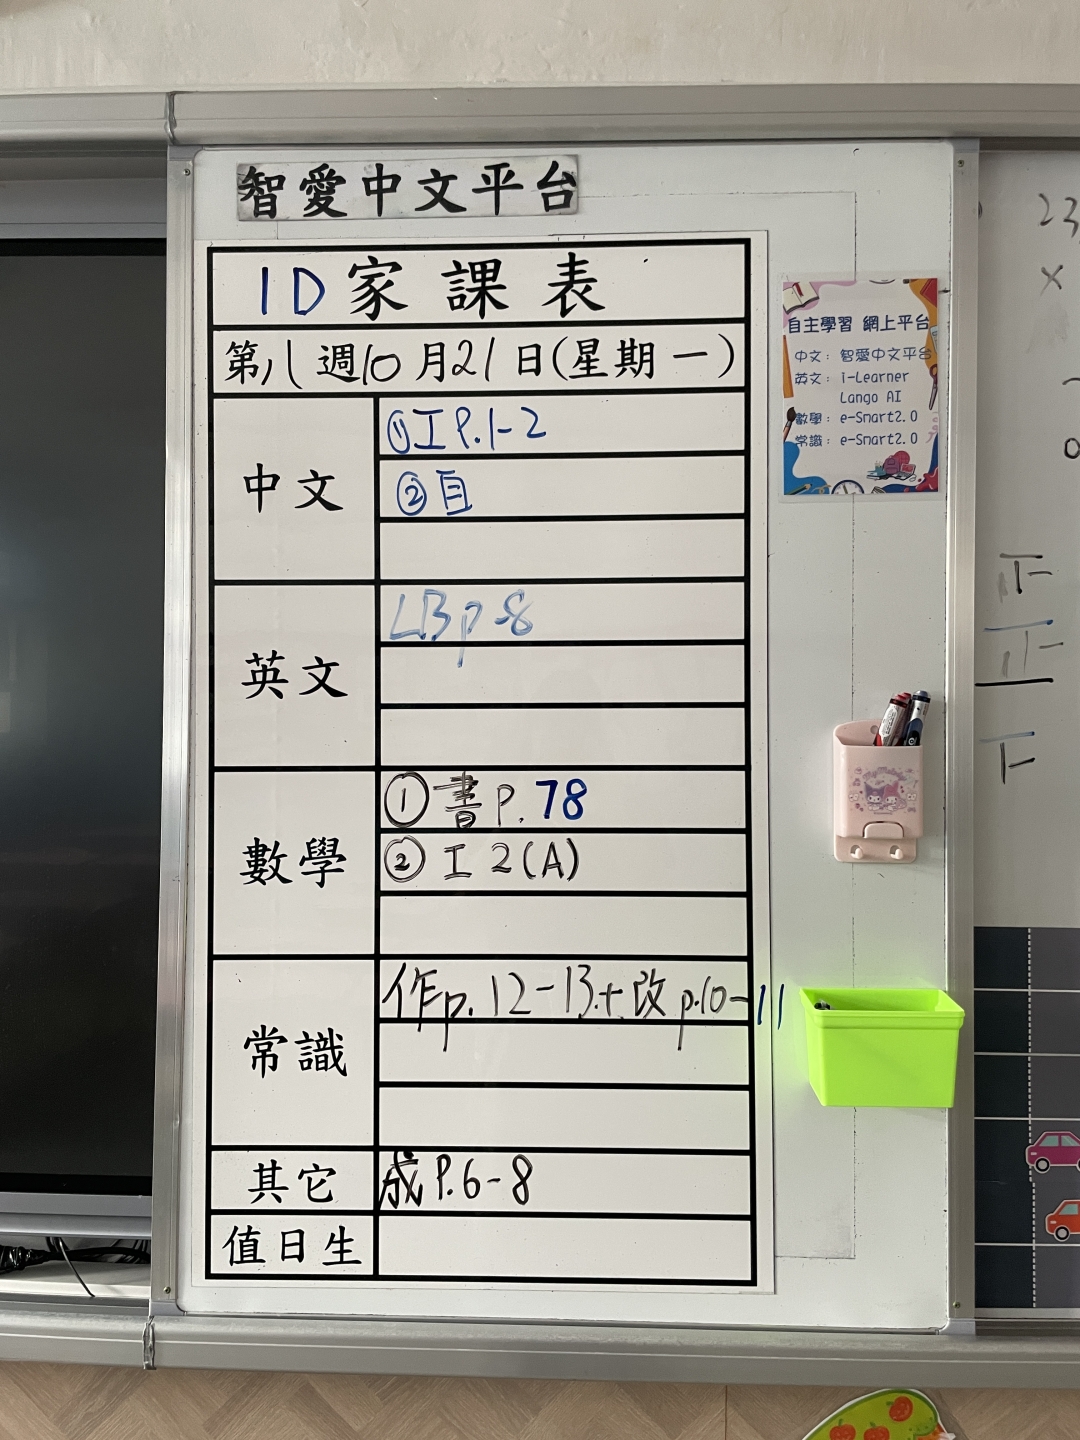 智愛中文平台
1D家課表
第八週10月21日(星期一)
中文
①工P.1-2
②自
英文
LB p-8
數學
①書p.78
②工2(A)
常識
作p.12-13+改p.10-11
其它
成P.6-8
值日生
自主學習 網上平台
中文: 智愛中文平台
英文: i-Learner
Lango AI
數學: e-Smart2.0
常識: e-Smart2.0
23
×
正
正
下